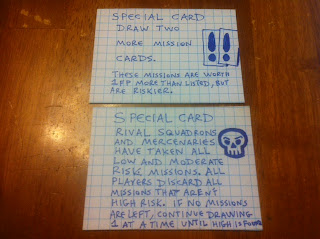 SPECIAL CARD
DRAW TWO
MORE MISSION
CARDS.
THESE MISSIONS ARE WORTH
1PP MORE THAN LISTED, BUT
ARE RISKIER.
SPECIAL CARD
RIVAL SQUADRONS
AND MERCENARIES
HAVE TAKEN ALL
LOW AND MODERATE
RISK MISSIONS. ALL
PLAYERS DISCARD ALL
MISSIONS THAT AREN'T
HIGH RISK. IF NO MISSIONS
ARE LEFT, CONTINUE DRAWING
1 AT A TIME UNTIL HIGH IS FOUND